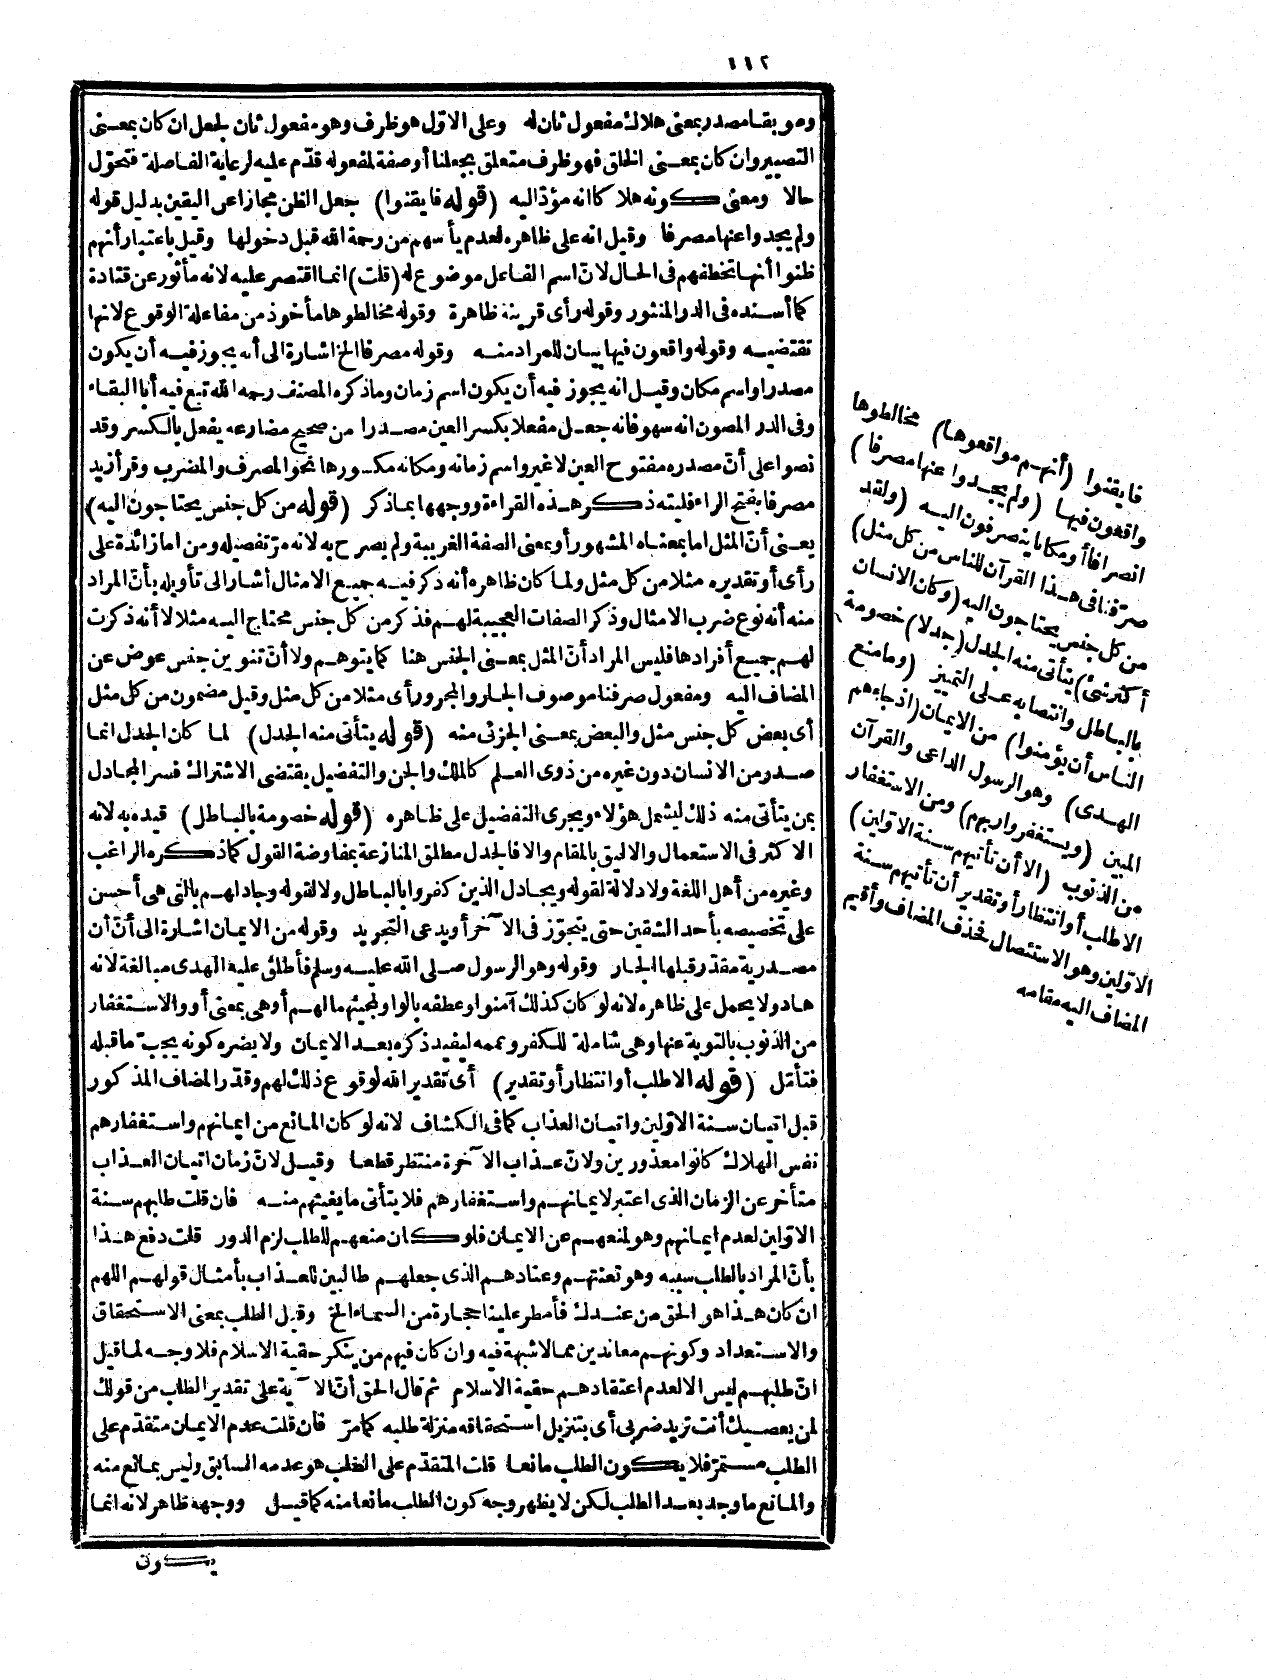 ١١٢
وموبقا مصدر بمعنى هلاك مفعول ثان له وعلى الاوّل هو ظرف وهو مفعول ثان لجعل ان كان بمعنى
التصيير وان كان بمعنى الخلق فهو ظرف متعلق بجعلنا أو صفة لمفعوله قدّم عليه لرعاية الفاصلة فتحوّل
حالا ومعنى كونه هلاكا انه مؤدّ اليه (قوله فايقنوا) جعل الظن مجازا عن اليقين بدليل قوله
ولم يجدوا عنها مصرفا وقيل انه على ظاهره لعدم يأسهم من رحمة الله قبل دخولها وقيل باعتبار أنهم
ظنوا أنها تخطفهم فى الحال لانّ اسم الفاعل موضوع له (قلت) انما اقتصر عليه لانه مأثور عن قتادة
كما أسنده فى الدر المنثور وقوله رأى قرينة ظاهرة وقوله مخالطوها مأخوذ من مفاعلة الوقوع لانها
تقتضيه وقوله واقعون فيها بيان للمراد منه وقوله مصرفا الخ اشارة الى أنه يجوز فيه أن يكون
مصدرا واسم مكان وقيل انه يجوز فيه أن يكون اسم زمان وما ذكره المصنف رحمه الله تبع فيه أبا البقاء
وفى الدر المصون انه سهو فانه جعل مفعلا بكسر العين مصدرا من صحيح مضارعه يفعل بالكسر وقد
نصوا على أنّ مصدره مفتوح العين لا غير واسم زمانه ومكانه مكسورها نحو المصرف والمضرب وقرأ زيد
مصرفا بفتح الراء فليته ذكر هذه القراءة ووجهها بما ذكر (قوله من كل جنس يحتاجون اليه)
يعنى أنّ المثل اما بمعناه المشهور أو بمعنى الصفة الغريبة ولم يصرح به لانه مرّ تفصيله ومن اما زائدة على
رأى أو تقديره مثلا من كل مثل ولما كان ظاهره أنه ذكر فيه جميع الامثال أشار الى تأويله بأنّ المراد
منه أنه نوع ضرب الامثال وذكر الصفات العجيبة لهم فذكر من كل جنس محتاج اليه مثلا لا أنه ذكرت
لهم جميع أفرادها فليس المراد أنّ المثل بمعنى الجنس هنا كما يتوهم ولا أنّ تنوين جنس عوض عن
المضاف اليه ومفعول صرفنا موصوف الجار والمجرور أى مثلا من كل مثل وقيل مضمون من كل مثل
أى بعض كل جنس مثل والبعض بمعنى الجزئى منه (قوله يتأتى منه الجدل) لما كان الجدل انما
صدر من الانسان دون غيره من ذوى العلم كالملك والجن والتفضيل يقتضى الاشتراك فسر المجادل
بمن يتأتى منه ذلك ليشمل هؤلاء ويجرى التفضيل على ظاهره (قوله خصومة بالباطل) قيده به لانه
الاكثر فى الاستعمال والاليق بالمقام والا فالجدل مطلق المنازعة بمفاوضة القول كما ذكره الراغب
وغيره من أهل اللغة ولا دلالة لقوله ويجادل الذين كفروا بالباطل ولا لقوله وجادلهم بالتى هى أحسن
على تخصيصه بأحد الشقين حتى يتجوّز فى الآخر أو يدعى التجريد وقوله من الايمان اشارة الى أنّ أن
مصدرية مقدّر قبلها الجار وقوله وهو الرسول صلى الله عليه وسلم فأطلق عليه الهدى مبالغة لانه
هاد ولا يحمل على ظاهره لانه لو كان كذلك آمنوا وعطفه بالواو لمجيئهما لهم أو هى بمعنى أو والاستغفار
من الذنوب بالتوبة عنها وهى شاملة للكفر وعممه ليفيد ذكره بعد الايمان ولا يضره كونه يجب ما قبله
فتأمّل (قوله الاطلب أو انتظار أو تقدير) أى تقدير الله لوقوع ذلك لهم وقدّر المضاف المذكور
قبل اتيان سنة الاوّلين واتيان العذاب كما فى الكشاف لانه لو كان المانع من ايمانهم واستغفارهم
نفس الهلاك كانوا معذورين ولانّ عذاب الآخرة منتظر قطعا وقيل لانّ زمان اتيان العذاب
متأخر عن الزمان الذى اعتبر لايمانهم واستغفارهم فلا يتأتى ما يغيثهم منه فان قلت طلبهم سنة
الاوّلين لعدم ايمانهم وهو لمنعهم عن الايمان فلو كان منعهم للطلب لزم الدور قلت دفع هذا
بأنّ المراد بالطلب سببه وهو تعنتهم وعنادهم الذى جعلهم طالبين للعذاب بأمثال قولهم اللهم
ان كان هذا هو الحق من عندك فأمطر علينا حجارة من السماء الخ وقيل الطلب بمعنى الاستحقاق
والاستعداد وكونهم معاندين مما لا شبهة فيه وان كان فيهم من ينكر حقية الاسلام فلا وجه لما قيل
انّ طلبهم ليس الا لعدم اعتقادهم حقية الاسلام ثم قال الحق أنّ الآية على تقدير الطلب من قولك
لمن يعصيك أنت تريد ضربى أى بتنزيل استحقاقه منزلة طلبه كما مرّ فان قلت عدم الايمان متقدّم على
الطلب مستمرّ فلا يكون الطلب مانعا قلت المتقدّم على الطلب هو عدمه السابق وليس بمانع منه
والمانع ما وجد بعد الطلب لكن لا يظهر وجه كون الطلب مانعا منه كما قيل ووجهه ظاهر لانه انما
يكون
فايقنوا (أنهم مواقعوها) مخالطوها
واقعون فيها (ولم يجدوا عنها مصرفا)
انصرافا أو مكانا ينصرفون اليه (ولقد
صرّفنا فى هذا القرآن للناس من كل مثل)
من كل جنس يحتاجون اليه (وكان الانسان
أكثر شئ) يتأتى منه الجدل (جدلا) خصومة
بالباطل وانتصابه على التمييز (وما منع
الناس أن يؤمنوا) من الايمان (اذ جاءهم
الهدى) وهو الرسول الداعى والقرآن
المبين (ويستغفروا ربهم) ومن الاستغفار
من الذنوب (الا أن تأتيهم سنة الاوّلين)
الاطلب أو انتظار أو تقدير أن تأتيهم سنة
الاوّلين وهو الاستئصال فحذف المضاف وأقيم
المضاف اليه مقامه